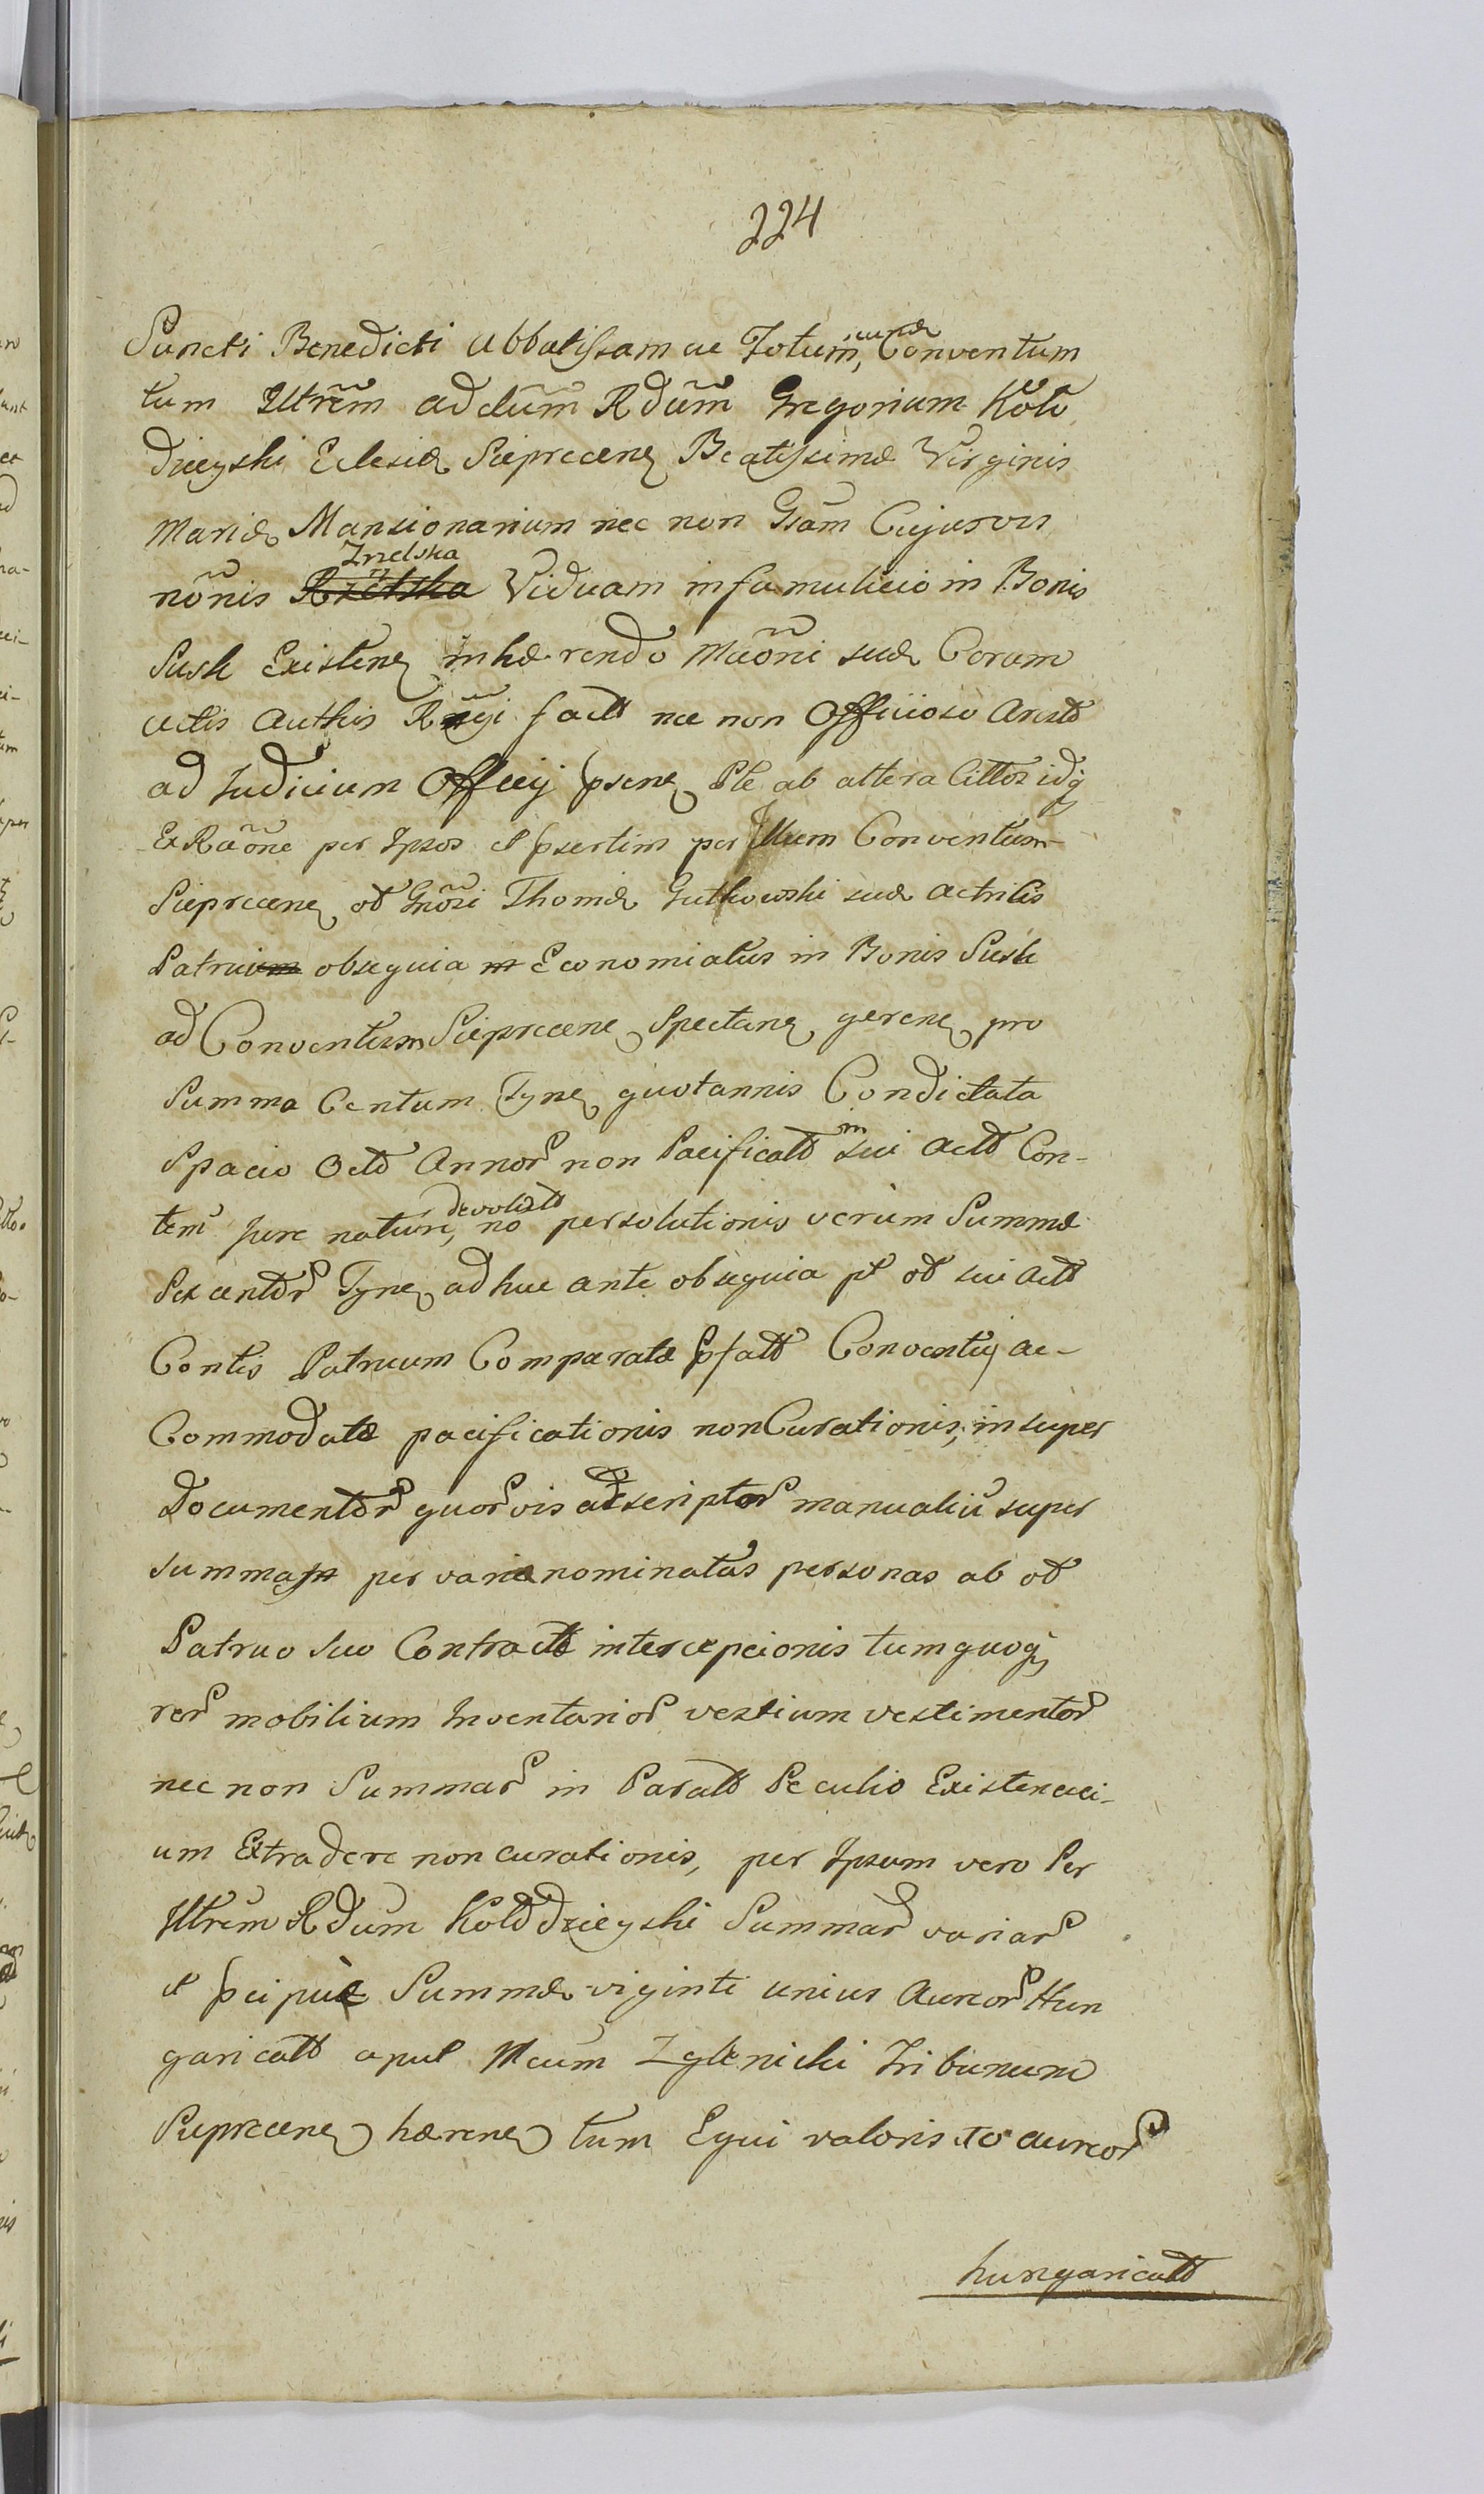 224
Sancti Benedicti Abbatissam ac Totum, Conventum
tum Illrem addum Rdum Gregorium Koło
dzieyski Eclesiæ Sieprecens Beatissimæ Virginis
Mariæ Mansionarium nec non Gsam Cujusvis
Zrzelska
nonis Rzelska Viduam in famulicio in Bonis
Susk Existens inhærendo Maoni suæ Coram
actis Authis Regÿ factæ nec non Officioso Aresto
ad Judicium Officÿ psens Ple ab altera Cittor idq
Ex Raone per Ipsos et psertim per Illum Conventum
Sieprecens ob Gnosi Thomæ Gutkowski suæ actritis
Patruum obsequia in Economiatus in Bonis Susk
ad Conventum Sieprecens Spectans gerens pro
Summa Centum Tyns quotannis Condictata
Spacio Octo Annor non Pacificato in sui Acto Con-
devoluto
tem jure naturæ, no persolutionis verùm Summæ
Sexcentor Tyns adhuc ante obsequia pt ob sui Acto
Contis Patruum Comparatæ pfato Conventuj ac-
Commodatæ pacificationis non Curationis, insuper
Documentor quorvis adscriptor manualiu super
summas per varie nominatas personas ab ob
Patruo suo Contracto intercepcionis tum quoq
rer mobilium Inventarior vestium vestimentor
nec non Summar in Parato Peculio Existenci-
um Extradere non curationis, per Ipsum vero Per
Illrem Rdum Kołodzieyski Summar variar
et pcipuè Summæ viginti unius Aureor Hun
garicato apud Mcum Zglenicki Tribunum
Sieprecens hærens tum Equi valoris 10 aureor
hungaricato